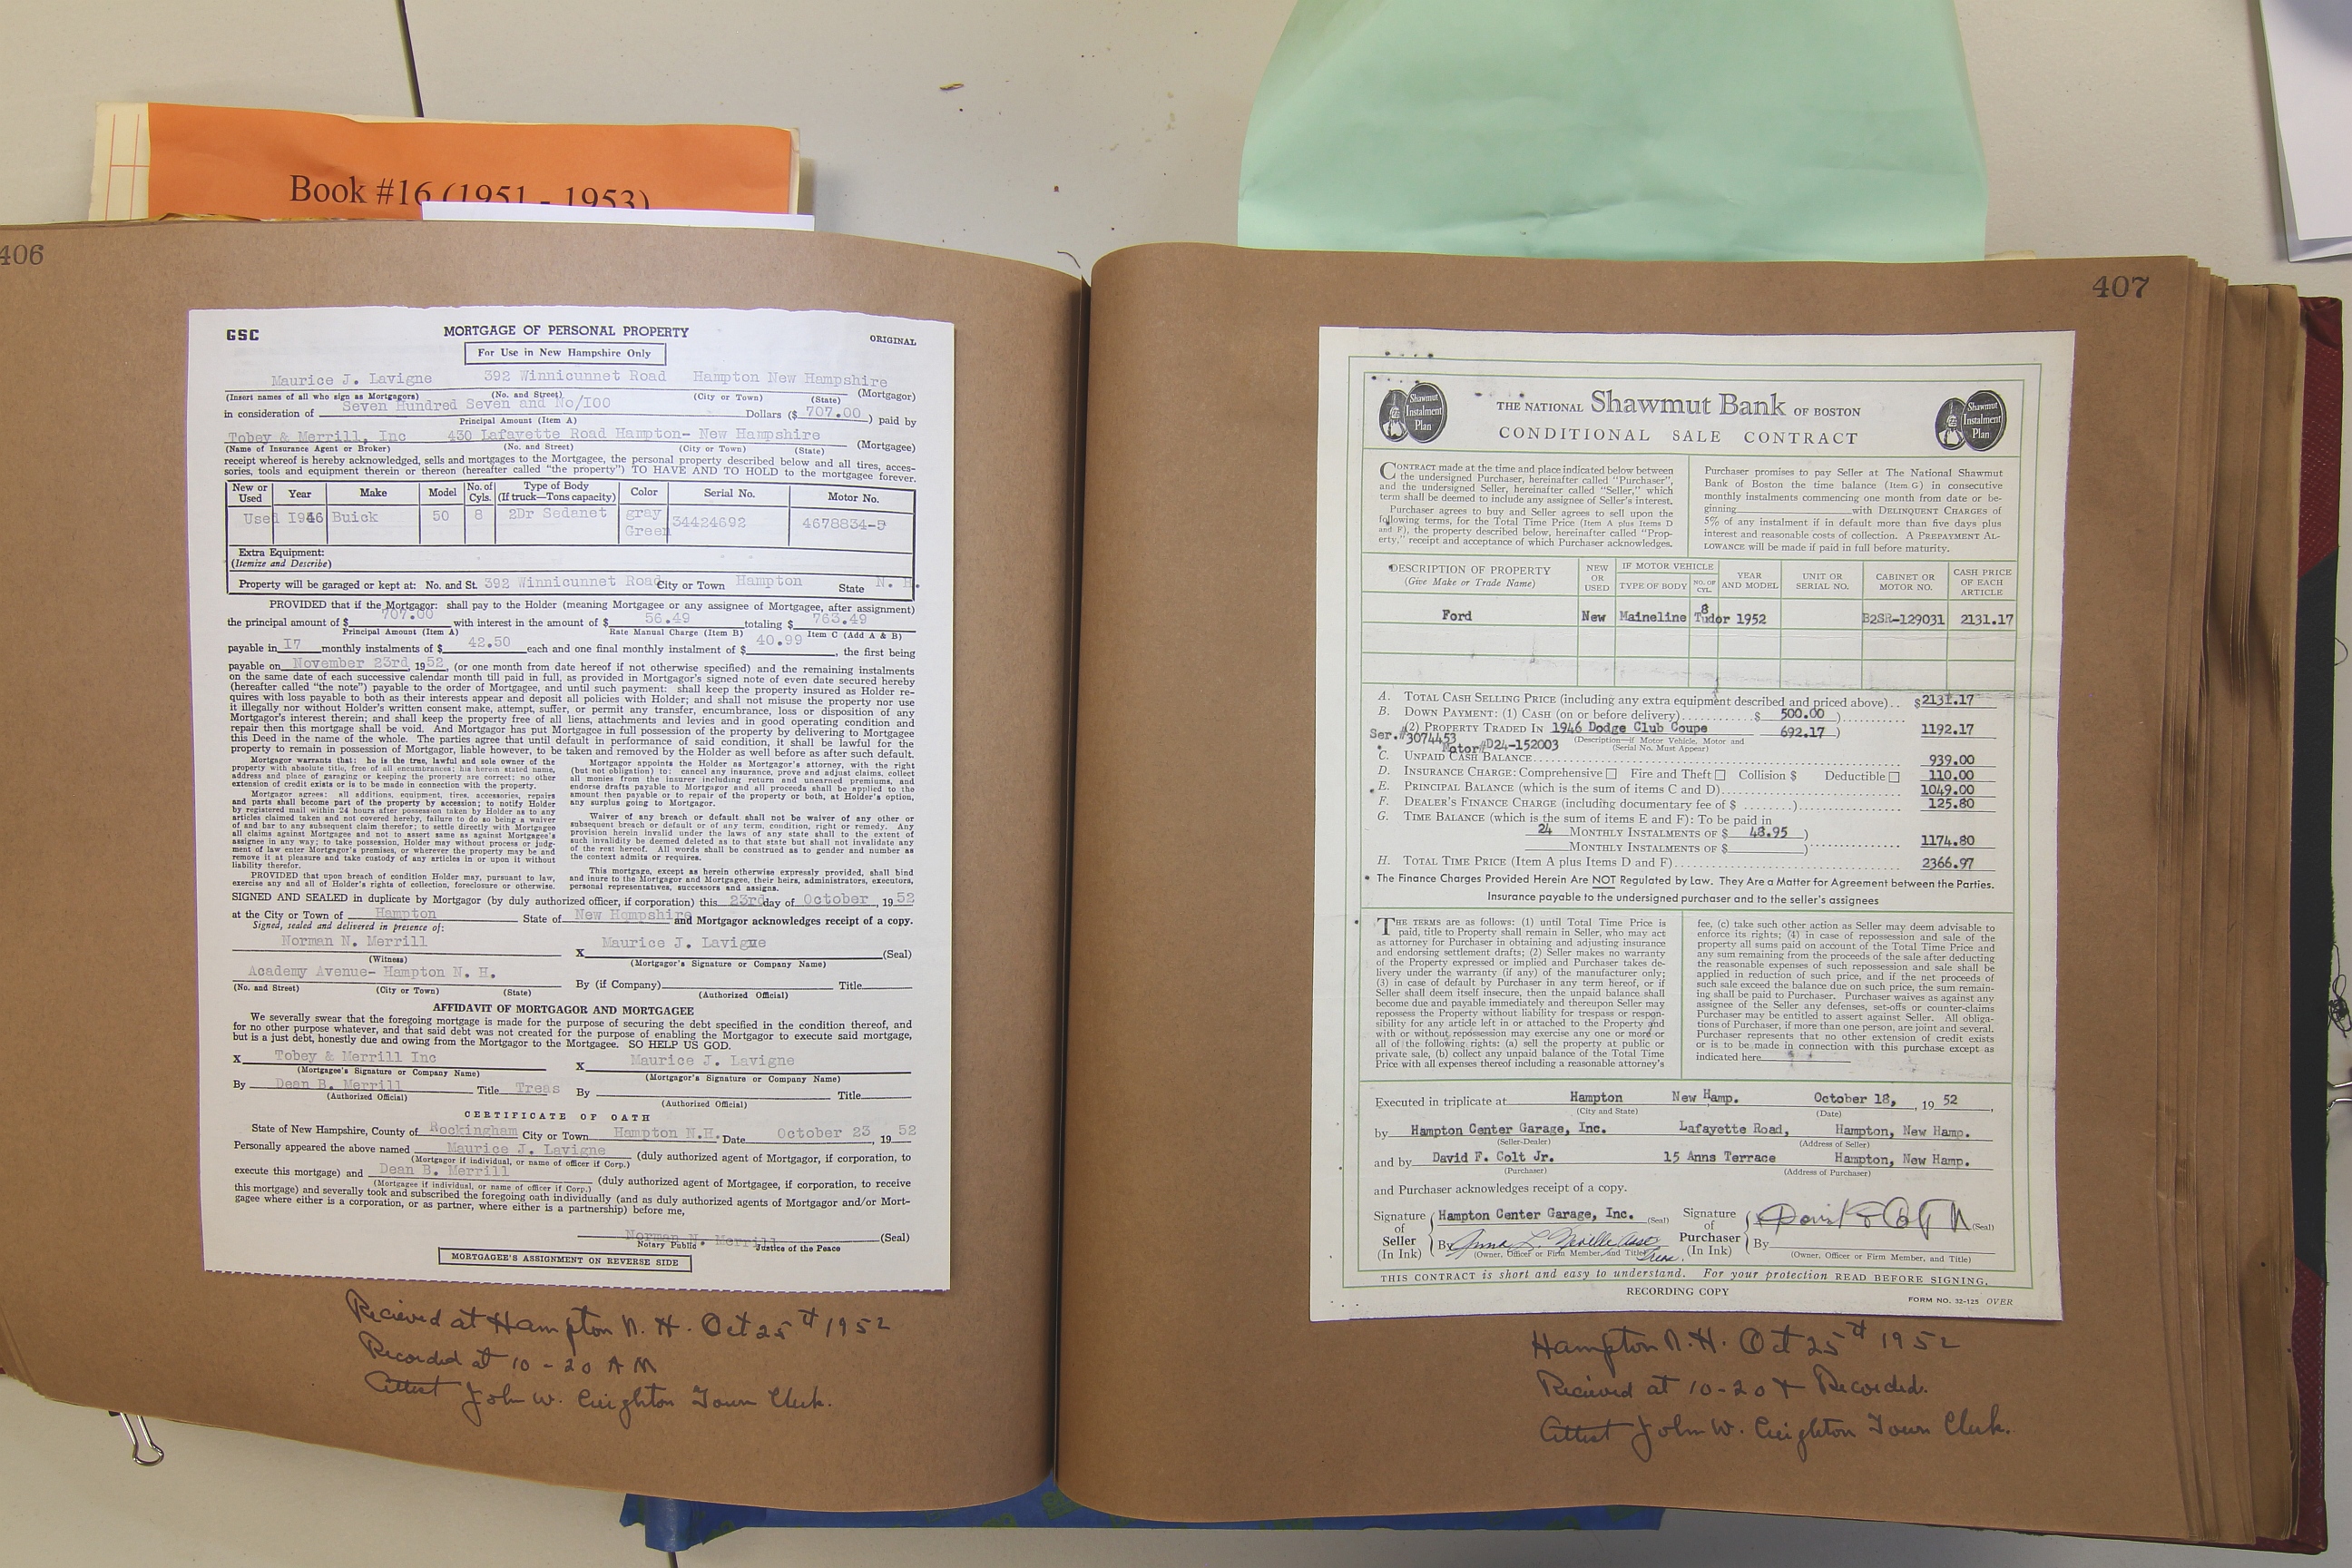 Book #16 (1951 - 1953)
406
GSC
MORTGAGE OF PERSONAL PROPERTY
ORIGINAL
For Use in New Hampshire Only
Maurice J. Lavigne 392 Winnicunnet Road Hampton New Hampshire
(Insert names of all who sign as Mortgagors) (No. and Street) (City or Town) (State) (Mortgagor)
in consideration of Seven Hundred Seven and No/I00 Dollars ($ 707.00 ) paid by
Principal Amount (Item A)
Tobey & Merrill, Inc 430 Lafayette Road Hampton- New Hampshire (Mortgagee)
(Name of Insurance Agent or Broker) (No. and Street) (City or Town) (State)
receipt whereof is hereby acknowledged, sells and mortgages to the Mortgagee, the personal property described below and all tires, acces-
sories, tools and equipment therein or thereon (hereafter called "the property") TO HAVE AND TO HOLD to the mortgagee forever.
New or Used Year Make Model No. of Cyls. Type of Body (If truck—Tons capacity) Color Serial No. Motor No.
Used I946 Buick 50 8 2Dr Sedanet gray Green 34424692 4678834-5
Extra Equipment:
(Itemize and Describe)
Property will be garaged or kept at: No. and St. 392 Winnicunnet Road City or Town Hampton State N. H.
PROVIDED that if the Mortgagor: shall pay to the Holder (meaning Mortgagee or any assignee of Mortgagee, after assignment)
the principal amount of $ 707.00 with interest in the amount of $ 56.49 totaling $ 763.49
Principal Amount (Item A) Rate Manual Charge (Item B) Item C (Add A & B)
payable in I7 monthly instalments of $ 42.50 each and one final monthly instalment of $ 40.99, the first being
payable on November 23rd, 1952, (or one month from date hereof if not otherwise specified) and the remaining instalments
on the same date of each successive calendar month till paid in full, as provided in Mortgagor's signed note of even date secured hereby
(hereafter called "the note") payable to the order of Mortgagee, and until such payment: shall keep the property insured as Holder re-
quires with loss payable to both as their interests appear and deposit all policies with Holder; and shall not misuse the property nor use
it illegally nor without Holder's written consent make, attempt, suffer, or permit any transfer, encumbrance, loss or disposition of any
Mortgagor's interest therein; and shall keep the property free of all liens, attachments and levies and in good operating condition and
repair then this mortgage shall be void. And Mortgagor has put Mortgagee in full possession of the property by delivering to Mortgagee
this Deed in the name of the whole. The parties agree that until default in performance of said condition, it shall be lawful for the
property to remain in possession of Mortgagor, liable however, to be taken and removed by the Holder as well before as after such default.
Mortgagor warrants that: he is the true, lawful and sole owner of the
property with absolute title, free of all encumbrances; his herein stated name,
address and place of garaging or keeping the property are correct; no other
extension of credit exists or is to be made in connection with the property.
Mortgagor agrees: all additions, equipment, tires, accessories, repairs
and parts shall become part of the property by accession; to notify Holder
by registered mail within 24 hours after possession taken by Holder as to any
articles claimed taken and not covered hereby, failure to do so being a waiver
of and bar to any subsequent claim therefor; to settle directly with Mortgagee
all claims against Mortgagee and not to assert same as against Mortgagee's
assignee in any way; to take possession, Holder may without process or judg-
ment of law enter Mortgagor's premises, or wherever the property may be and
remove it at pleasure and take custody of any articles in or upon it without
liability therefor.
PROVIDED that upon breach of condition Holder may, pursuant to law,
exercise any and all of Holder's rights of collection, foreclosure or otherwise.
Mortgagor appoints the Holder as Mortgagor's attorney, with the right
(but not obligation) to: cancel any insurance, prove and adjust claims, collect
all monies from the insurer including return and unearned premiums, and
endorse drafts payable to Mortgagor and all proceeds shall be applied to the
amount then payable or to repair of the property or both, at Holder's option,
any surplus going to Mortgagor.
Waiver of any breach or default shall not be waiver of any other or
subsequent breach or default or of any term, condition, right or remedy. Any
provision herein invalid under the laws of any state shall to the extent of
such invalidity be deemed deleted as to that state but shall not invalidate any
of the rest hereof. All words shall be construed as to gender and number as
the context admits or requires.
This mortgage, except as herein otherwise expressly provided, shall bind
and inure to the Mortgagor and Mortgagee, their heirs, administrators, executors,
personal representatives, successors and assigns.
SIGNED AND SEALED in duplicate by Mortgagor (by duly authorized officer, if corporation) this 23rd day of October, 1952
at the City or Town of Hampton State of New Hompshire and Mortgagor acknowledges receipt of a copy.
Signed, sealed and delivered in presence of:
Norman N. Merrill X Maurice J. Lavigne (Seal)
(Witness) (Mortgagor's Signature or Company Name)
Academy Avenue- Hampton N. H. By (if Company) Title
(No. and Street) (City or Town) (State) (Authorized Official)
AFFIDAVIT OF MORTGAGOR AND MORTGAGEE
We severally swear that the foregoing mortgage is made for the purpose of securing the debt specified in the condition thereof, and
for no other purpose whatever, and that said debt was not created for the purpose of enabling the Mortgagor to execute said mortgage,
but is a just debt, honestly due and owing from the Mortgagor to the Mortgagee. SO HELP US GOD.
X Tobey & Merrill Inc X Maurice J. Lavigne
(Mortgagee's Signature or Company Name) (Mortgagor's Signature or Company Name)
By Dean B. Merrill Title Treas By Title
(Authorized Official) (Authorized Official)
CERTIFICATE OF OATH
State of New Hampshire, County of Rockingham City or Town Hampton N.H. Date October 23, 1952
Personally appeared the above named Maurice J. Lavigne (duly authorized agent of Mortgagor, if corporation, to
(Mortgagor if individual, or name of officer if Corp.)
execute this mortgage) and Dean B. Merrill (duly authorized agent of Mortgagee, if corporation, to receive
(Mortgagee if individual, or name of officer if Corp.)
this mortgage) and severally took and subscribed the foregoing oath individually (and as duly authorized agents of Mortgagor and/or Mort-
gagee where either is a corporation, or as partner, where either is a partnership) before me,
Norman N. Merrill (Seal)
Notary Public Justice of the Peace
MORTGAGEE'S ASSIGNMENT ON REVERSE SIDE
Recieved at Hampton N. H. Oct 25th 1952
Recorded at 10-20 AM
Attest John W. Creighton Town Clerk.
407
Shawmut Instalment Plan
THE NATIONAL Shawmut Bank OF BOSTON
CONDITIONAL SALE CONTRACT
Shawmut Instalment Plan
CONTRACT made at the time and place indicated below between
the undersigned Purchaser, hereinafter called "Purchaser",
and the undersigned Seller, hereinafter called "Seller," which
term shall be deemed to include any assignee of Seller's interest.
Purchaser agrees to buy and Seller agrees to sell upon the
following terms, for the Total Time Price (Item A plus Items D
and F), the property described below, hereinafter called "Prop-
erty," receipt and acceptance of which Purchaser acknowledges.
Purchaser promises to pay Seller at The National Shawmut
Bank of Boston the time balance (Item G) in consecutive
monthly instalments commencing one month from date or be-
ginning with DELINQUENT CHARGES of
5% of any instalment if in default more than five days plus
interest and reasonable costs of collection. A PREPAYMENT AL-
LOWANCE will be made if paid in full before maturity.
DESCRIPTION OF PROPERTY (Give Make or Trade Name) NEW OR USED IF MOTOR VEHICLE TYPE OF BODY NO. OF CYL. YEAR AND MODEL UNIT OR SERIAL NO. CABINET OR MOTOR NO. CASH PRICE OF EACH ARTICLE
Ford New Maineline Tudor 8 1952 B2SR-129031 2131.17
A. TOTAL CASH SELLING PRICE (including any extra equipment described and priced above).. $2131.17
B. DOWN PAYMENT: (1) CASH (on or before delivery) $ 500.00 )
(2) PROPERTY TRADED IN 1946 Dodge Club Coupe 692.17 ) 1192.17
Ser.#3074453 Motor#D24-152003 (Description—If Motor Vehicle, Motor and Serial No. Must Appear)
C. UNPAID CASH BALANCE 939.00
D. INSURANCE CHARGE: Comprehensive ☐ Fire and Theft ☐ Collision $ Deductible ☐ 110.00
E. PRINCIPAL BALANCE (which is the sum of items C and D) 1049.00
F. DEALER'S FINANCE CHARGE (including documentary fee of $ ) 125.80
G. TIME BALANCE (which is the sum of items E and F): To be paid in
24 MONTHLY INSTALMENTS OF $ 48.95 )
MONTHLY INSTALMENTS OF $ ) 1174.80
H. TOTAL TIME PRICE (Item A plus Items D and F) 2366.97
The Finance Charges Provided Herein Are NOT Regulated by Law. They Are a Matter for Agreement between the Parties.
Insurance payable to the undersigned purchaser and to the seller's assignees
THE TERMS are as follows: (1) until Total Time Price is
paid, title to Property shall remain in Seller, who may act
as attorney for Purchaser in obtaining and adjusting insurance
and endorsing settlement drafts; (2) Seller makes no warranty
of the Property expressed or implied and Purchaser takes de-
livery under the warranty (if any) of the manufacturer only;
(3) in case of default by Purchaser in any term hereof, or if
Seller shall deem itself insecure, then the unpaid balance shall
become due and payable immediately and thereupon Seller may
repossess the Property without liability for trespass or respon-
sibility for any article left in or attached to the Property and
with or without repossession may exercise any one or more or
all of the following rights: (a) sell the property at public or
private sale, (b) collect any unpaid balance of the Total Time
Price with all expenses thereof including a reasonable attorney's
fee, (c) take such other action as Seller may deem advisable to
enforce its rights; (4) in case of repossession and sale of the
property all sums paid on account of the Total Time Price and
any sum remaining from the proceeds of the sale after deducting
the reasonable expenses of such repossession and sale shall be
applied in reduction of such price, and if the net proceeds of
such sale exceed the balance due on such price, the sum remain-
ing shall be paid to Purchaser. Purchaser waives as against any
assignee of the Seller any defenses, set-offs or counter-claims
Purchaser may be entitled to assert against Seller. All obliga-
tions of Purchaser, if more than one person, are joint and several.
Purchaser represents that no other extension of credit exists
or is to be made in connection with this purchase except as
indicated here
Executed in triplicate at Hampton New Hamp. October 18, , 19 52 ,
(City and State) (Date)
by Hampton Center Garage, Inc. Lafayette Road, Hampton, New Hamp.
(Seller-Dealer) (Address of Seller)
and by David F. Colt Jr. 15 Anns Terrace Hampton, New Hamp.
(Purchaser) (Address of Purchaser)
and Purchaser acknowledges receipt of a copy.
Signature of Seller (In Ink) Hampton Center Garage, Inc. (Seal) Signature of Purchaser (In Ink) (Seal)
By Anna L. Neville Asst Treas. By
(Owner, Officer or Firm Member, and Title) (Owner, Officer or Firm Member, and Title)
THIS CONTRACT is short and easy to understand. For your protection READ BEFORE SIGNING.
RECORDING COPY
FORM NO. 32-125 OVER
Hampton N.H. Oct 25th 1952
Recieved at 10-20 + Recorded.
Attest John W. Creighton Town Clerk.